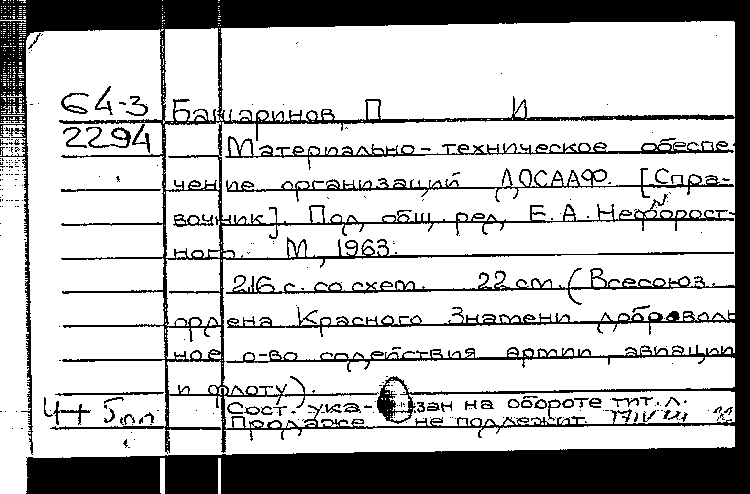 64-3 Башаринов, П И
2294 Материально-техническое обеспе-
чение организаций ДОСААФ. [Спра-
вочник]. Под общ. ред. Е.А. Нефорост-
ного. М., 1963.
216 с. со схем. 22 см. (Всесоюз.
ордена Красного Знамени доброволь
ное о-во содействия армии, авиации
и флоту).
Сост. ука- зан на обороте тит. л.
Продаже не подлежит.